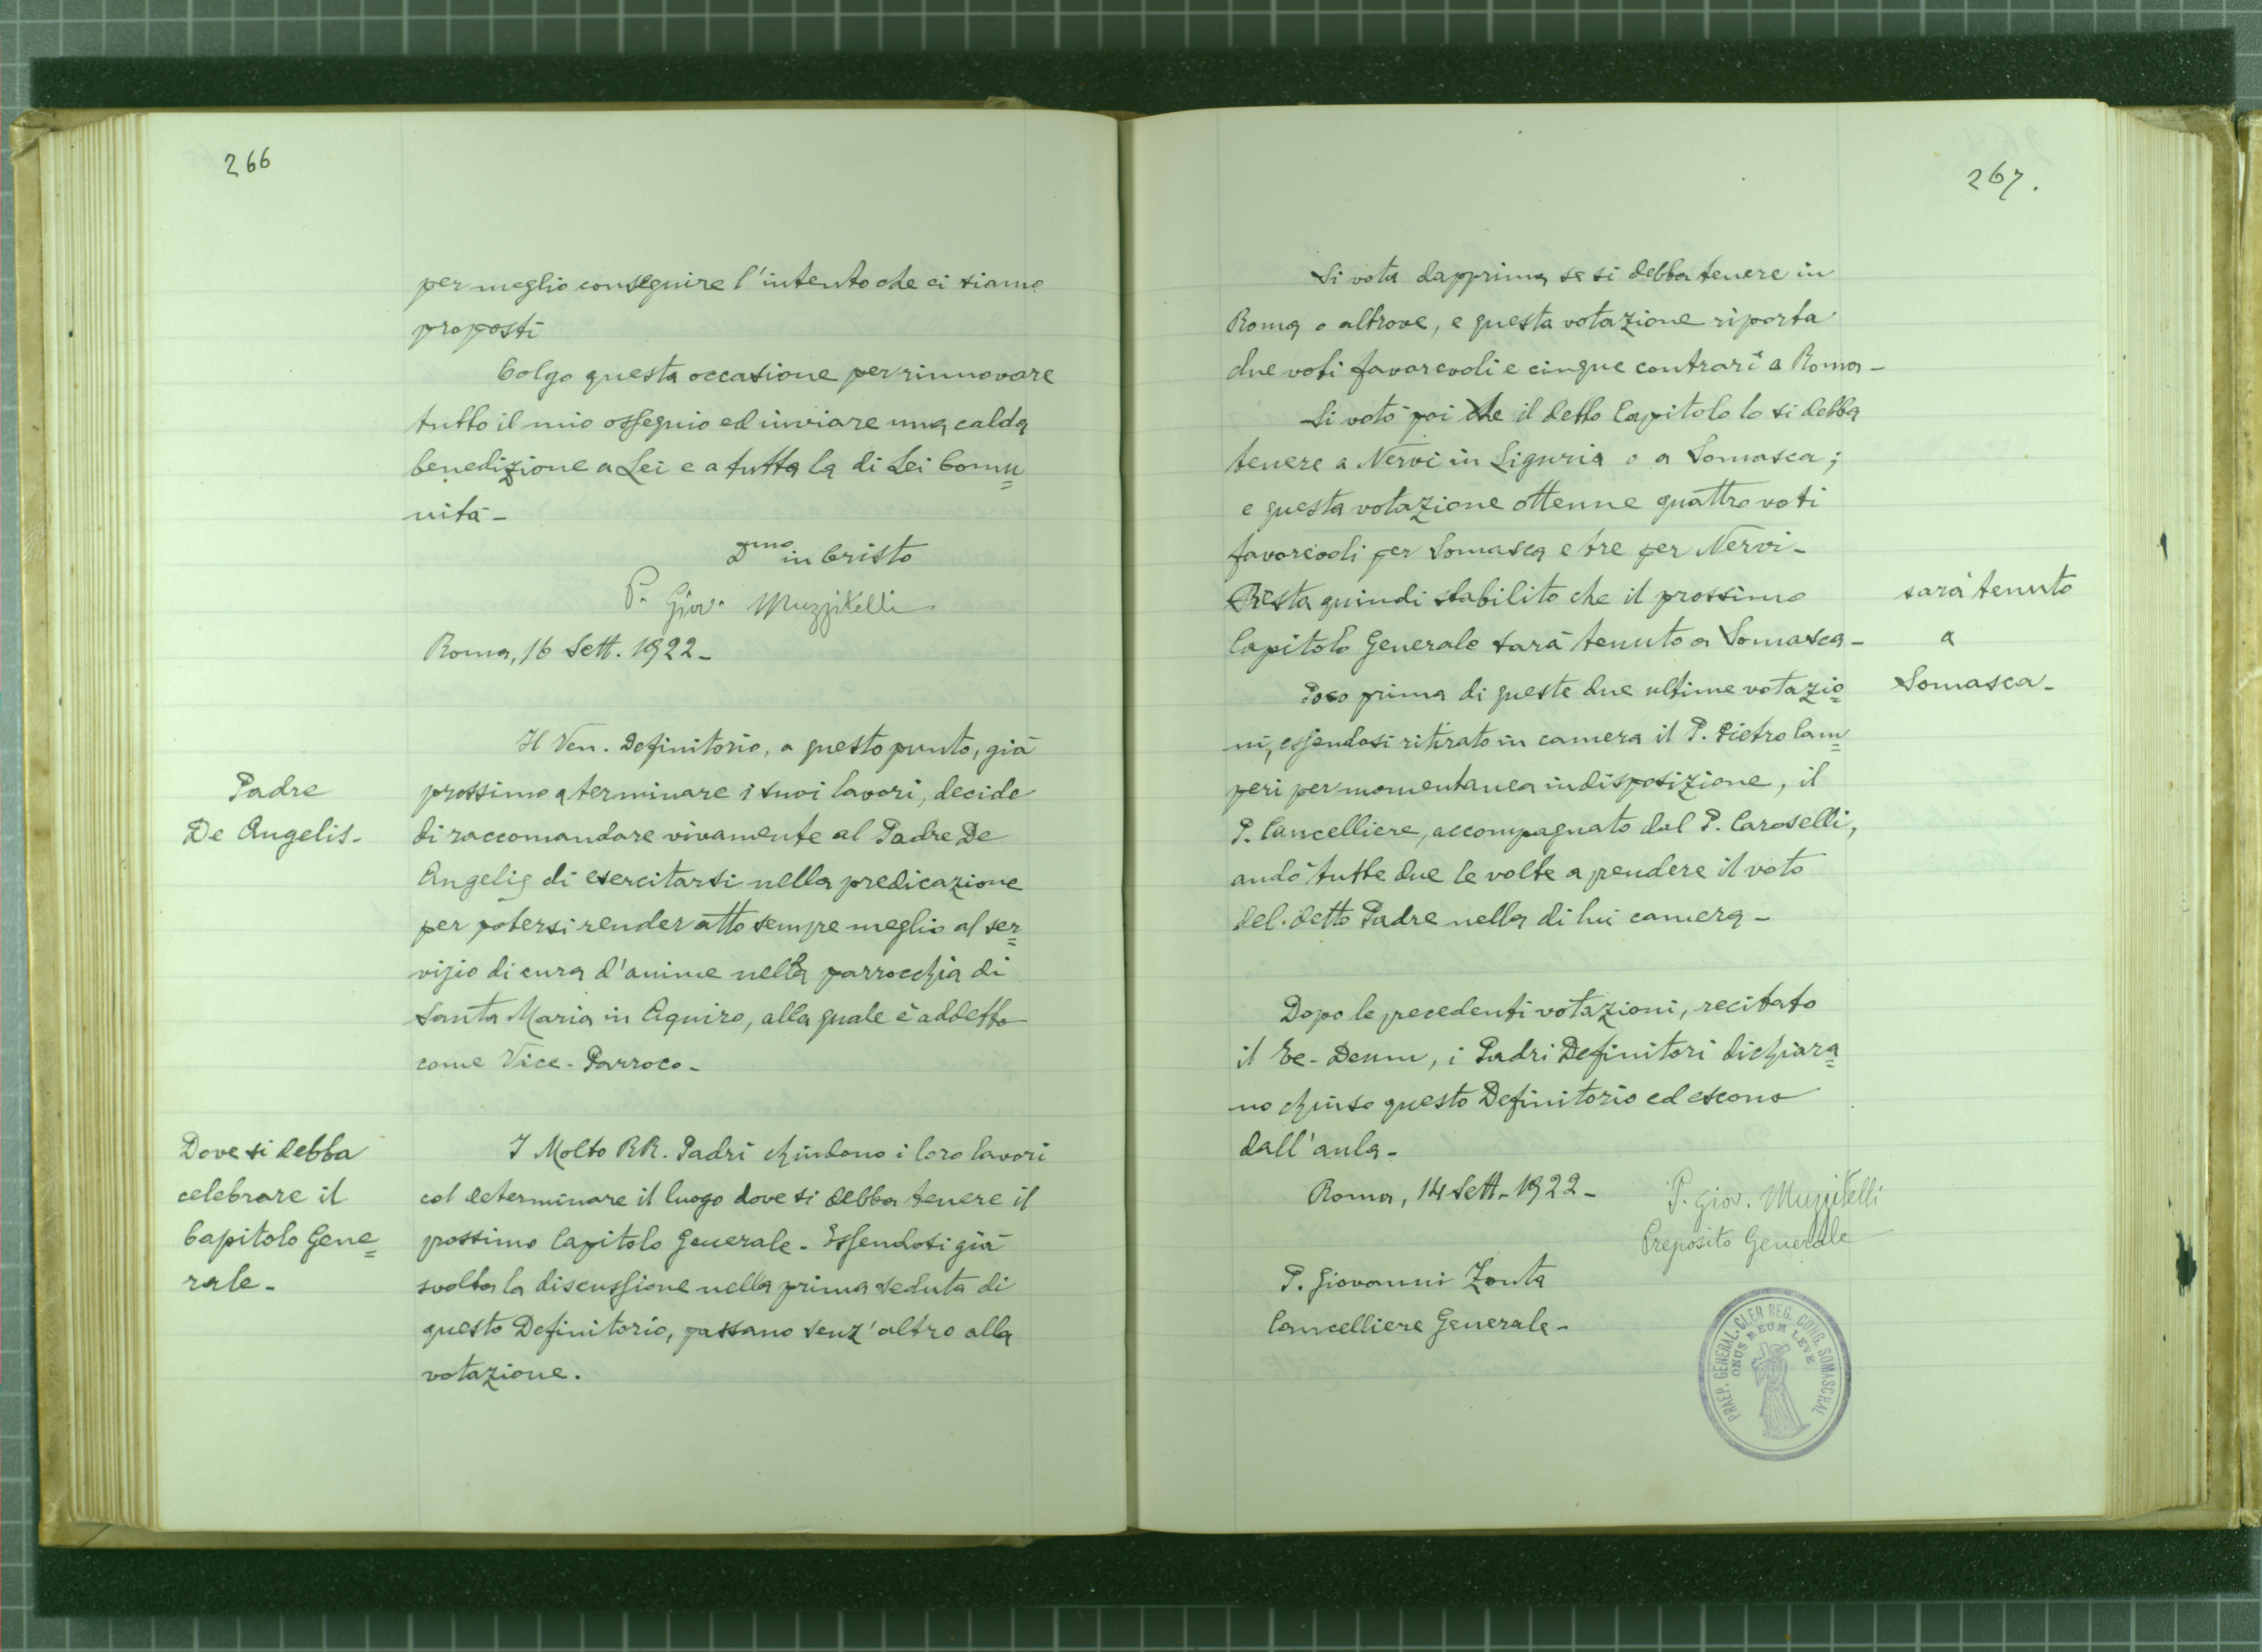 266
per meglio conseguire l'intento che ci siamo
proposti
Colgo questa occasione per rinnovare
tutto il mio ossequio ed inviare una calda
benedizione a Lei e a tutta la di Lei Comu=
nità -
Dmo in Cristo
P. Giov. Muzzitelli
Roma, 16 Sett. 1922 -
Il Ven. Definitorio, a questo punto, già
Padre
De Angelis -
prossimo a terminare i suoi lavori, decide
di raccomandare vivamente al Padre De
Angelis di esercitarsi nella predicazione
per potersi render atto sempre meglio al ser=
vizio di cura d'anime nella parrocchia di
Santa Maria in Aquiro, alla quale è addetto
come Vice-Parroco -
Dove si debba
celebrare il
Capitolo Gene=
rale -
I Molto RR. Padri chiudono i loro lavori
col determinare il luogo dove si debba tenere il
prossimo Capitolo Generale - Essendosi già
svolta la discussione nella prima seduta di
questo Definitorio, passano senz'altro alla
votazione.
267.
Si vota dapprima se si debba tenere in
Roma o altrove, e questa votazione riporta
due voti favorevoli e cinque contrari a Roma -
Si votò poi che il detto Capitolo lo si debba
tenere a Nervi in Liguria o a Somasca;
e questa votazione ottenne quattro voti
favorevoli per Somasca e tre per Nervi -
Resta quindi stabilito che il prossimo
Capitolo Generale sarà tenuto a Somasca -
sarà tenuto
a
Somasca -
Poco prima di queste due ultime votazio=
ni, essendosi ritirato in camera il P. Pietro Cam=
peri per momentanea indisposizione, il
P. Cancelliere, accompagnato dal P. Caroselli,
andò tutte due le volte a prendere il voto
del detto Padre nella di lui camera -
Dopo le precedenti votazioni, recitato
il Te-Deum, i Padri Definitori dichiara=
no chiuso questo Definitorio ed escono
dall'aula -
Roma, 14 Sett - 1922 -
P. Giov. Muzzitelli
Preposito Generale
P. Giovanni Zonta
Cancelliere Generale -
PRAEP. GENERAL. CLER. REG. CONG. SOMASCHAE
ONUS MEUM LEVE